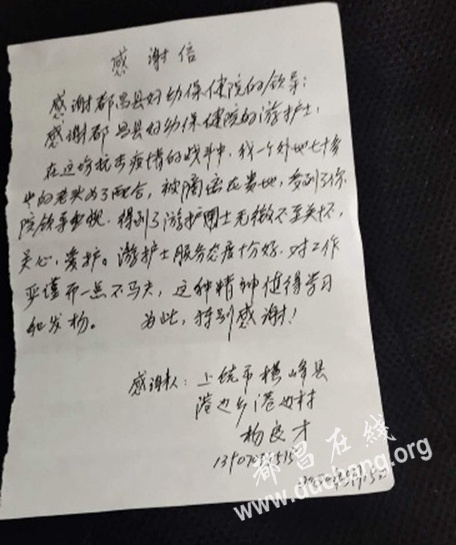 感谢信
感谢都昌县妇幼保健院的领导；
感谢都昌县妇幼保健院的游护士，
在这场抗击疫情的战斗中，我一个外地七十多
岁的老头为了配合，被隔离在贵地，受到了你
院领导重视，得到了游护士无微不至关怀，
关心，爱护。游护士服务态度恰好，对工作
严谨而一点不马夫，这种精神值得学习
和发杨。 为此，特别感谢！
感谢人：上饶市横峰县
港边乡港边村
杨良才
都昌在线
www.duchang.org